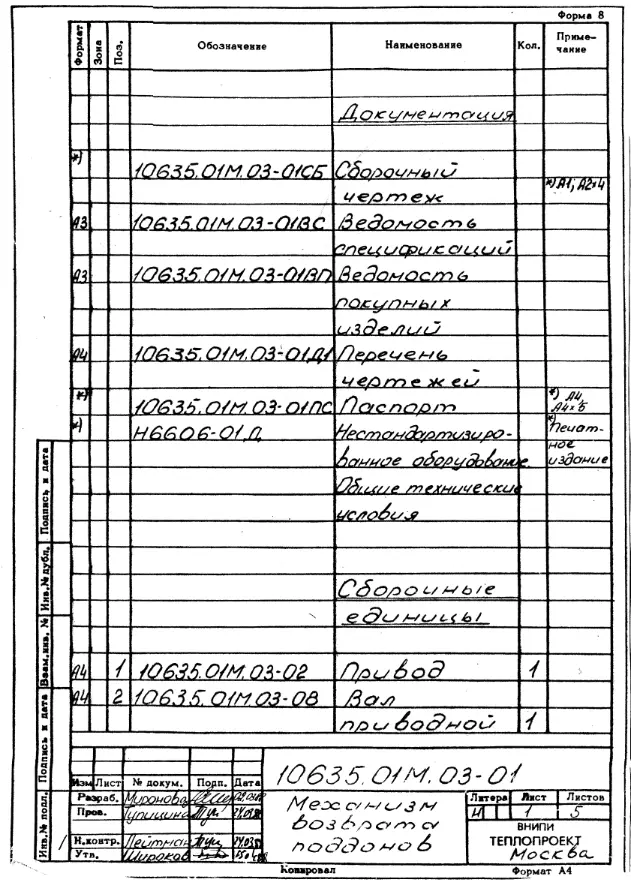 Форма 8
Формат Зона Поз. Обозначение Наименование Кол. Приме-
чание
Документация
*) 10635.01М.03-01СБ Сборочный *) А1, А2×4
чертеж
А3 10635.01М.03-01ВС Ведомость
спецификаций
А3 10635.01М.03-01ВП Ведомость
покупных
изделий
А4 10635.01М.03-01Д1 Перечень
чертежей
*) 10635.01М.03-01ПС Паспорт *) А4,
А4×5
*) Н6606-01Д Нестандартизиро- *) Печат-
ное
ванное оборудование. издание
Общие технические
условия
Сборочные
единицы
А4 1 10635.01М.03-02 Привод 1
А4 2 10635.01М.03-08 Вал
приводной 1
Инв.№ подл. Подпись и дата Взам.инв. № Инв.№ дубл. Подпись и дата
10635.01М.03-01
Изм Лист № докум. Подп. Дата
Разраб. Миронова
Пров.
Н.контр. Лейтман
Утв. Широков
Механизм
возврата
поддонов
Литера Лист Листов
И 1 5
ВНИПИ
ТЕПЛОПРОЕКТ
Москва
Копировал Формат А4